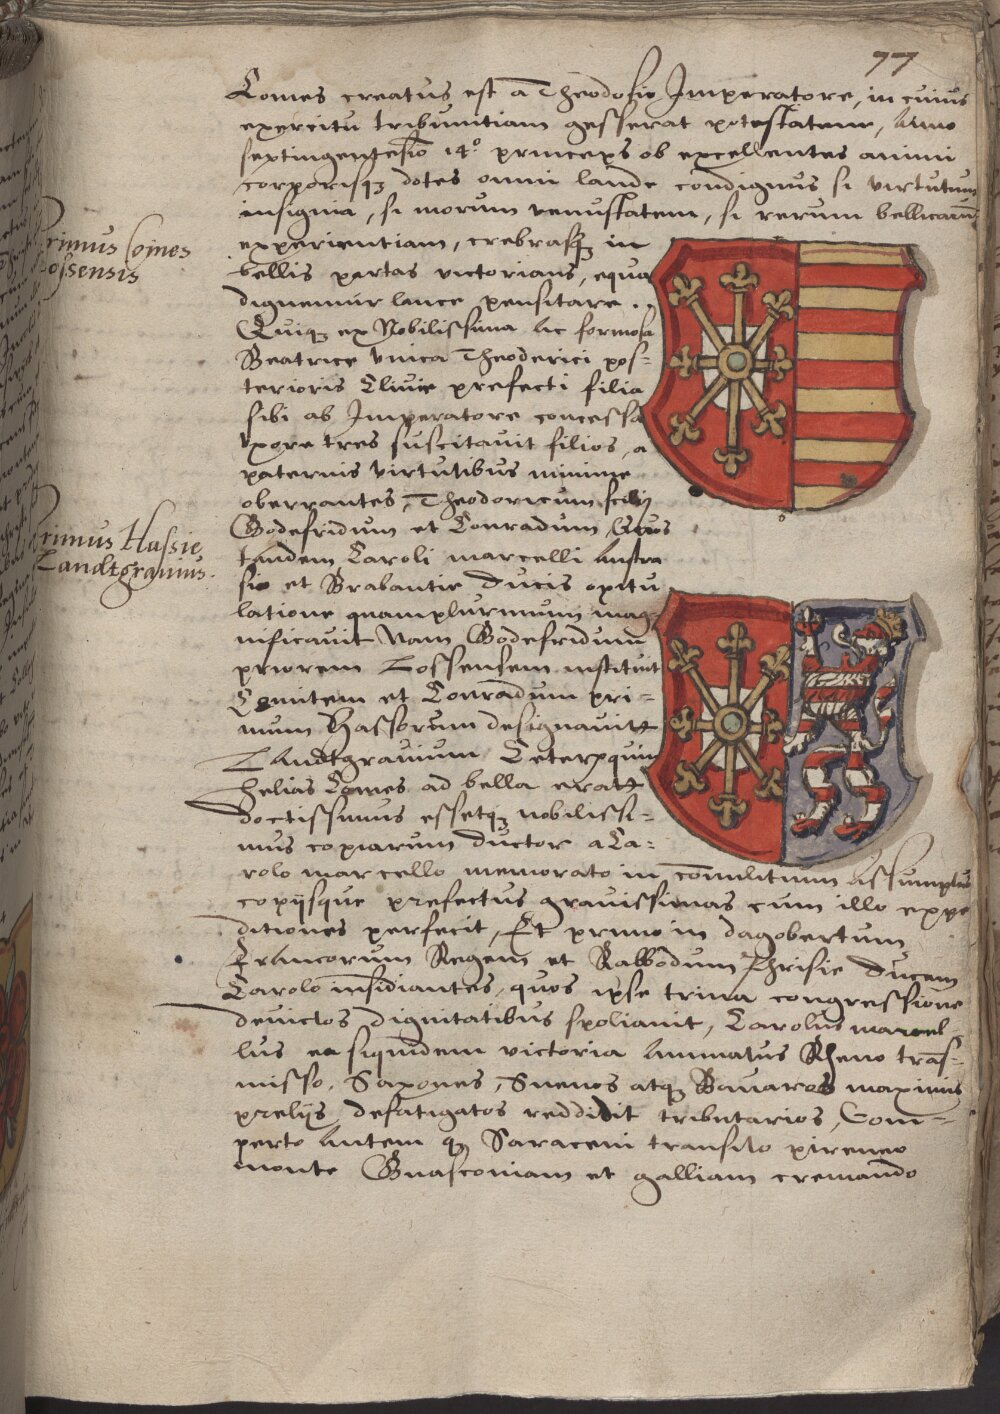 77
Comes creatus est a Theodosio Imperatore, in cuius
exercitu tribunitiam gesserat potestatem, Anno
septingentesio 14º princeps ob excellentes animi
corporisqz dotes omni laude condignus si virtutum
insignia, si morum venustatem, si rerum bellicarū
experientiam, crebrasqz in
bellis partas victorians, equa
dignemur lance pensitare.
Quiqz ex Nobilissima ac formosa
Beatrice vnica Theoderici pos-
terioris Clivie prefecti filia
sibi ab Imperatore concessa
vxore tres suscitavit filios, a
paternis virtutibus minime
oberrantes, Theodoricum scilz
Godefridum et Conradum, Quos
tandem Caroli marcelli Austra
sie et Brabantie Ducis opitu
latione quamplurimum mag-
nificauit Nam Godefridum
priorem Lossensem instituit
Comitem et Conradum pri-
mum Hassorum designauitt
LAndtgrauium Ceterpquin
Helias Comes ad bella eratt
doctissimus essetqz nobilissi-
mus copiarum ductor a Ca-
rolo marcello memorato in cōmilitium assumptus
copijsque prefectus grauissimas cum illo expe
ditiones perfecit, Et primo in dagobertum
Francorum Regem et Rabbodum Phrisie Ducem
Carolo insidiantes, quos ipse trina congressione
deuictos dignitatibus spoliauit, Carolus marcel-
lus ea siquidem victoria Animatus Rheno tras-
misso, Saxones, Sueuos atqz Bauaros maximis
prelijs defatigatos reddidit tributarios, Com-
perto Autem qz Saraceni transito pireneo
monte Guasconiam et galliam cremando
Primus Comes
Lossensis
Primus Hassie
Landtgrauius.